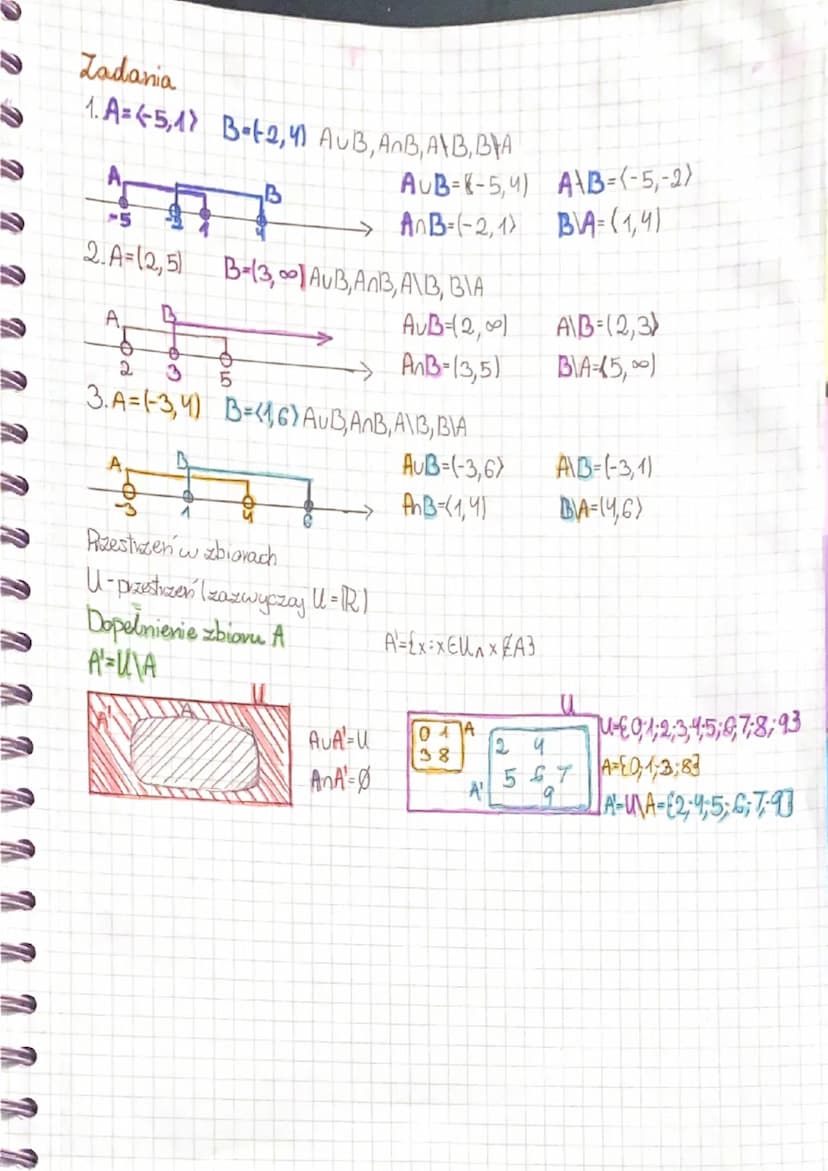 Zadania
1. A=⟨-5,1⟩ B=(-2,4) A∪B, A∩B, A\B, B\A
A B A∪B=⟨-5,4) A\B=⟨-5,-2⟩
-5 -2 1 4 A∩B=(-2,1⟩ B\A=(1,4)
2. A=(2,5) B=(3,∞) A∪B, A∩B, A\B, B\A
A B A∪B=(2,∞) A\B=(2,3⟩
2 3 5 A∩B=(3,5) B\A=⟨5,∞)
3. A=(-3,4) B=⟨1,6⟩ A∪B, A∩B, A\B, B\A
A B A∪B=(-3,6⟩ A\B=(-3,1)
-3 1 4 6 A∩B=⟨1,4) B\A=⟨4,6⟩
Przestrzeń w zbiorach
U-przestrzeń (zazwyczaj U=ℝ)
Dopełnienie zbioru A A'={x:x∈U∧x∉A}
A'=U\A
U
A' A
A∪A'=U
A∩A'=Ø
U
0 1 A
3 8
2 4
5 6 7
A' 9
U={0;1;2;3;4;5;6;7;8;9}
A={0;1;3;8}
A'=U\A={2;4;5;6;7;9}